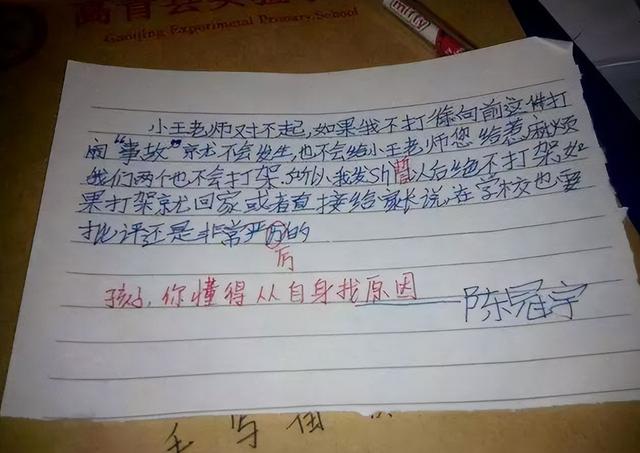 高青县实
Gaoqing Experimental Primary School
小王老师对不起,如果我不打徐向前这件打
闹“事故”就不会发生,也不会给小王老师您给惹麻烦
我们两个也不会打架,所以我发Shi誓以后绝不打架,如
果打架就回家或者直接给家长说,在学校也要
批评还是非常严历的
厉
孩子,你懂得从自身找原因
陈冠宇
写